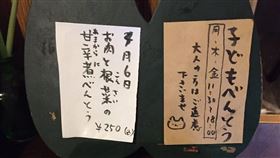 子どもべんとう
月・木・金
11:30~18:00
大人の方はご遠慮
下さいませ
4月6日
お肉と根菜の
こんさい
甘辛煮べんとう
あまからに
¥250